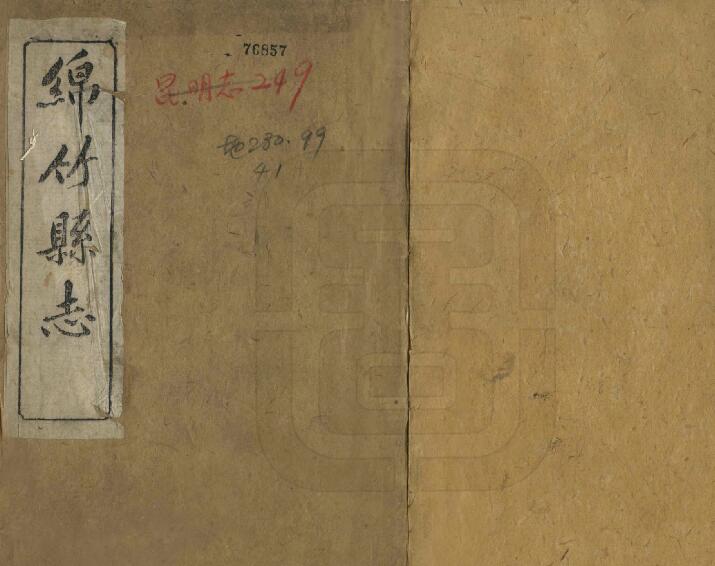 綿竹縣志
76857
昆明志249
地230.99
41